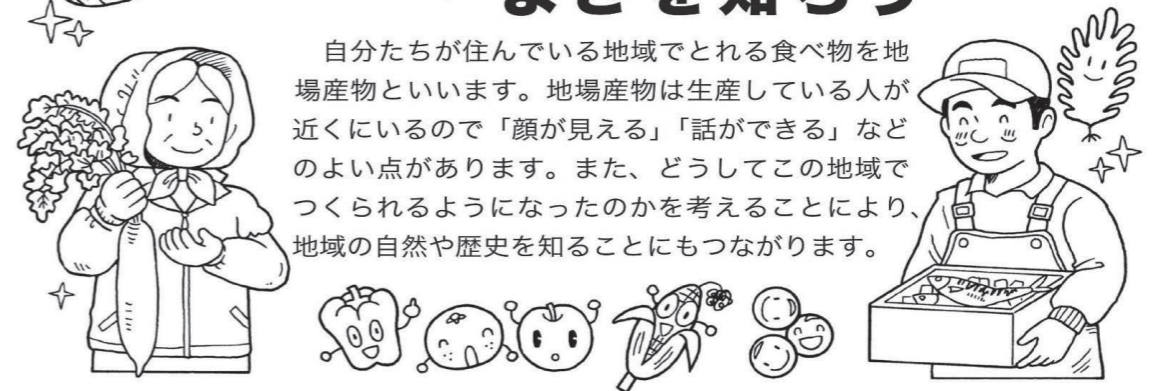 まさを知ろう
自分たちが住んでいる地域でとれる食べ物を地
場産物といいます。地場産物は生産している人が
近くにいるので「顔が見える」「話ができる」など
のよい点があります。また、どうしてこの地域で
つくられるようになったのかを考えることにより、
地域の自然や歴史を知ることにもつながります。